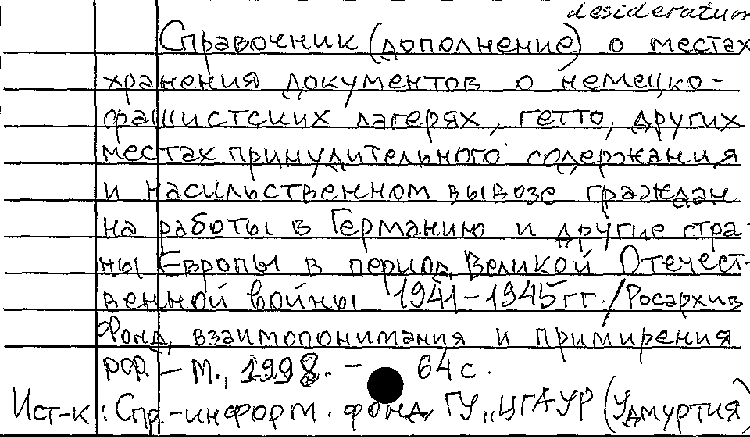 desideratum
Справочник (дополнение) о местах
хранения документов о немецко-
фашистских лагерях, гетто, других
местах принудительного содержания
и насильственном вывозе граждан
на работы в Германию и другие стра-
ны Европы в период Великой Отечест-
венной войны 1941-1945 гг. / Росархив
Фонд взаимопонимания и примирения
РФ. - М., 1998. - 64 с.
Ист-к: Спр.-информ. фонд ГУ "ЦГА УР (Удмуртия)